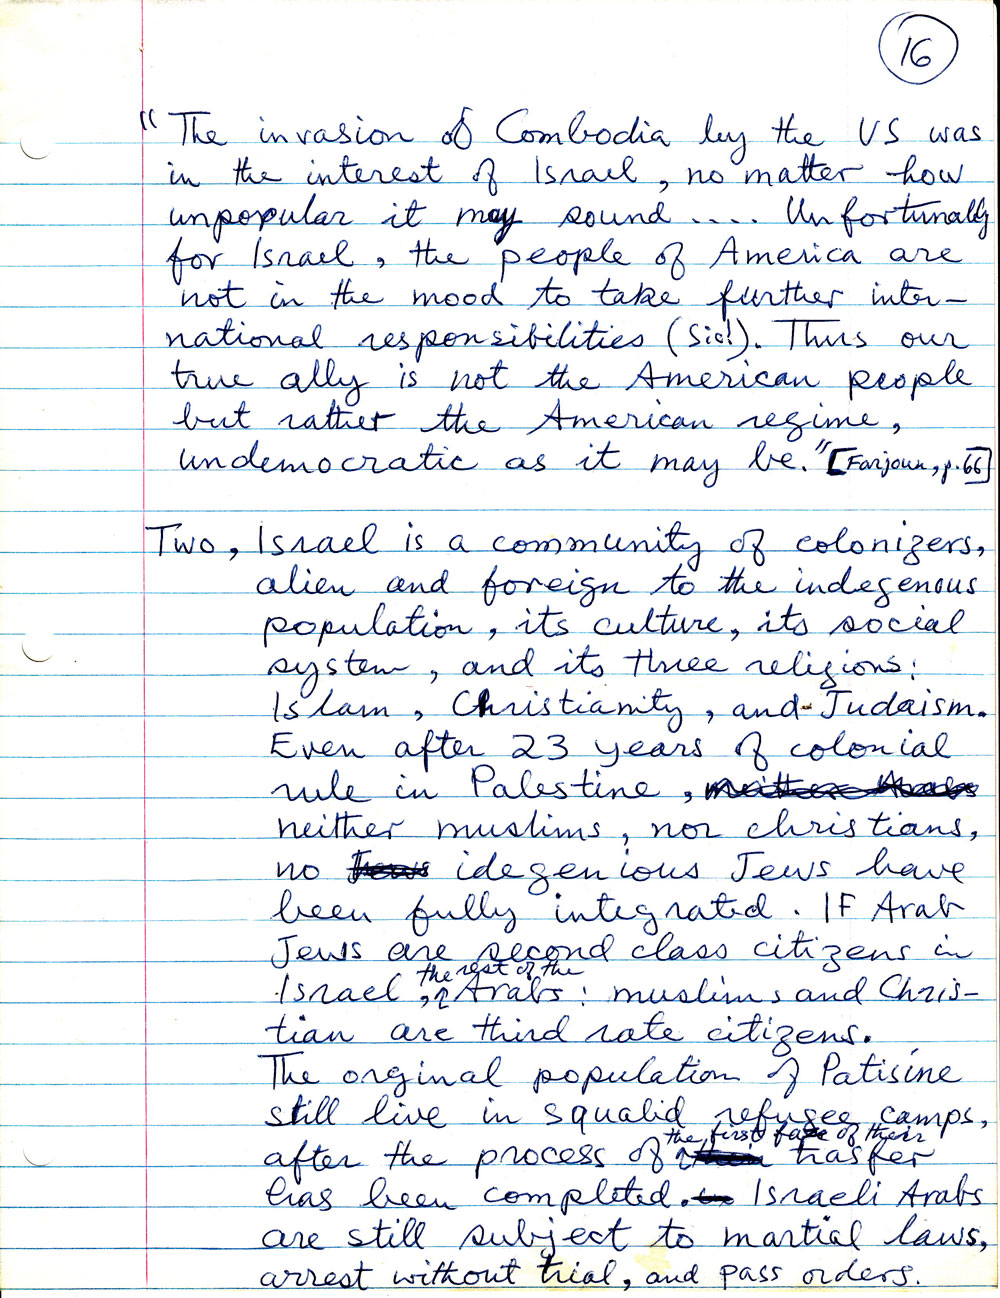 16
"The invasion of Combodia by the US was
in the interest of Israel, no matter how
unpopular it may sound .... Unfortunally
for Israel, the people of America are
not in the mood to take further inter-
national responsibilities (Sic!). Thus our
true ally is not the American people
but rather the American regime,
undemocratic as it may be." [Farjoun, p.66]
Two, Israel is a community of colonizers,
alien and foreign to the indegenous
population, its culture, its social
system, and its three religions:
Islam, Christianity, and Judaism.
Even after 23 years of colonial
rule in Palestine, neither Arabs
neither muslims, nor christians,
no Jews idegenious Jews have
been fully integrated. If Arab
Jews are second class citizens in
the rest of the
Israel, Arabs: muslims and Chris-
tian are third rate citizens.
The orginal population of Patisine
still live in squalid refugee camps,
the first faze of their
after the process of their trasfer
has been completed. Israeli Arabs
are still subject to martial laws,
arrest without trial, and pass orders.